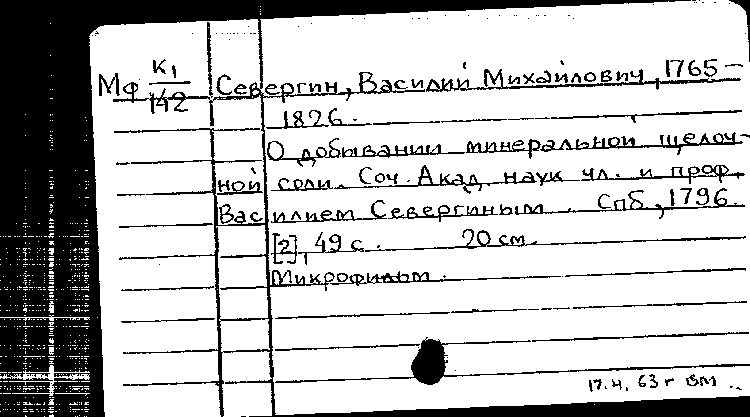 Мф К1/142 Севергин, Василий Михайлович, 1765-
1826.
О добывании минеральной щелоч-
ной соли. Соч. Акад. наук чл. и проф.
Василием Севергиным. Спб, 1796.
[2], 49 с. 20 см.
Микрофильм.
63 г ВМ